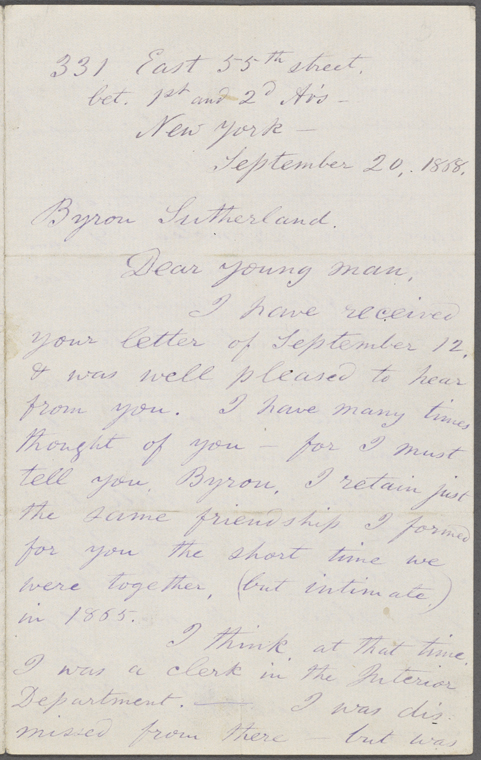 331 East 55th street,
bet. 1st and 2d Av's –
New York –
September 20, 1868.
Byron Sutherland.
Dear young man,
I have received
your letter of September 12,
& was well pleased to hear
from you. I have many times
thought of you – for I must
tell you, Byron, I retain just
the same friendship I formed
for you the short time we
were together, (but intimate,)
in 1865.
I think at that time,
I was a clerk in the Interior
Department. — I was dis-
missed from there – but was